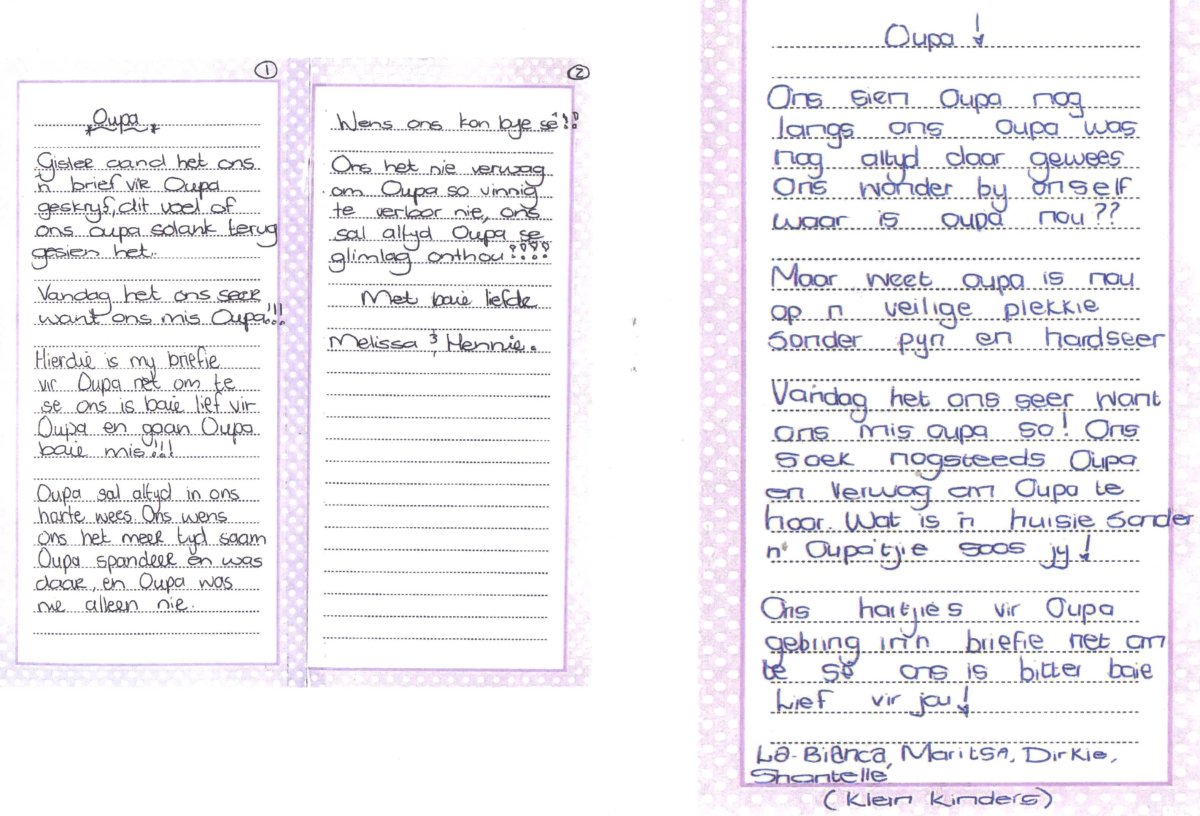 1
Oupa
Gister aand het ons
'n brief vir Oupa
geskryf, dit voel of
ons oupa solank terug
gesien het.
Vandag het ons seer
want ons mis Oupa!!!
Hierdie is my briefie
vir Oupa net om te
se ons is baie lief vir
Oupa en gaan Oupa
baie mis!!!
Oupa sal altyd in ons
harte wees. Ons wens
ons het meer tyd saam
Oupa spandeer en was
daar, en Oupa was
nie alleen nie.
2
Wens ons kon bye sê!!!
Ons het nie verwag
om Oupa so vinnig
te verloor nie, ons
sal altyd Oupa se
glimlag onthou!!!!
Met baie liefde
Melissa & Hennie.
Oupa!
Ons sien Oupa nog
langs ons Oupa was
nog altyd daar gewees
Ons wonder by onself
waar is oupa nou??
Maar weet oupa is nou
op n veilige plekkie
sonder pyn en hardseer
Vandag het ons seer want
ons mis oupa so! Ons
soek nogsteeds Oupa
en verwag om Oupa te
hoor. Wat is 'n huisie sonder
n' Oupa'tjie soos jy!
Ons hartjies vir Oupa
gebring in'n briefie net om
te sê ons is bitter baie
Lief vir jou!
La-Bianca, Maritsa, Dirkie,
Shantelle
(Klein Kinders)